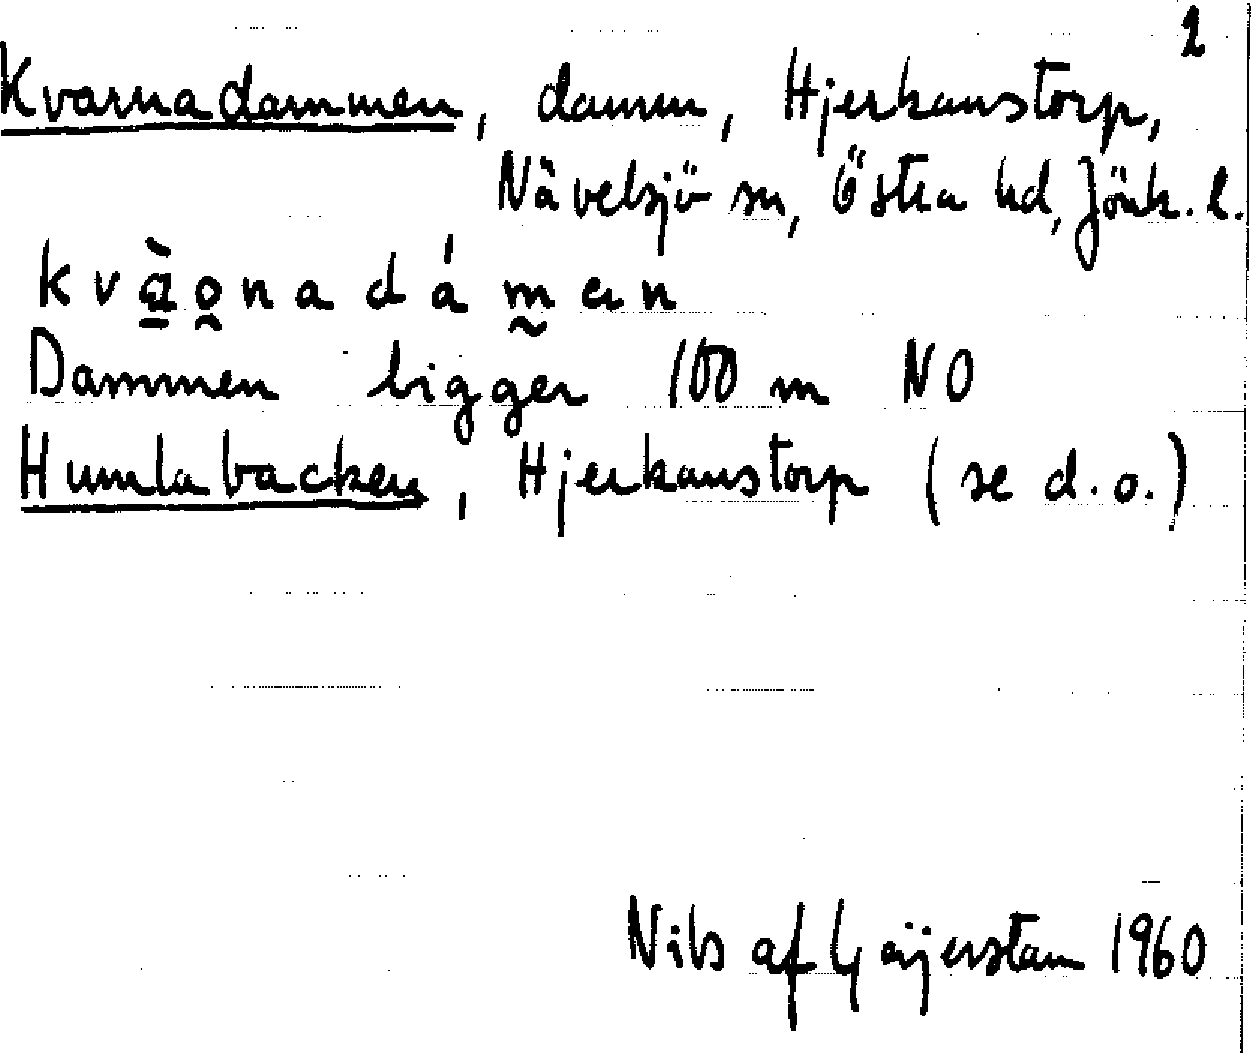 2
Kvarnadammen, damm, Hjerkanstorp,
Nävelsjö sn, Östra hd, Jönk. l.
kvạ̀onadámen
Dammen ligger 100 m NO
Humlabacken, Hjerkanstorp (se d.o.)
Nils af Geijerstam 1960